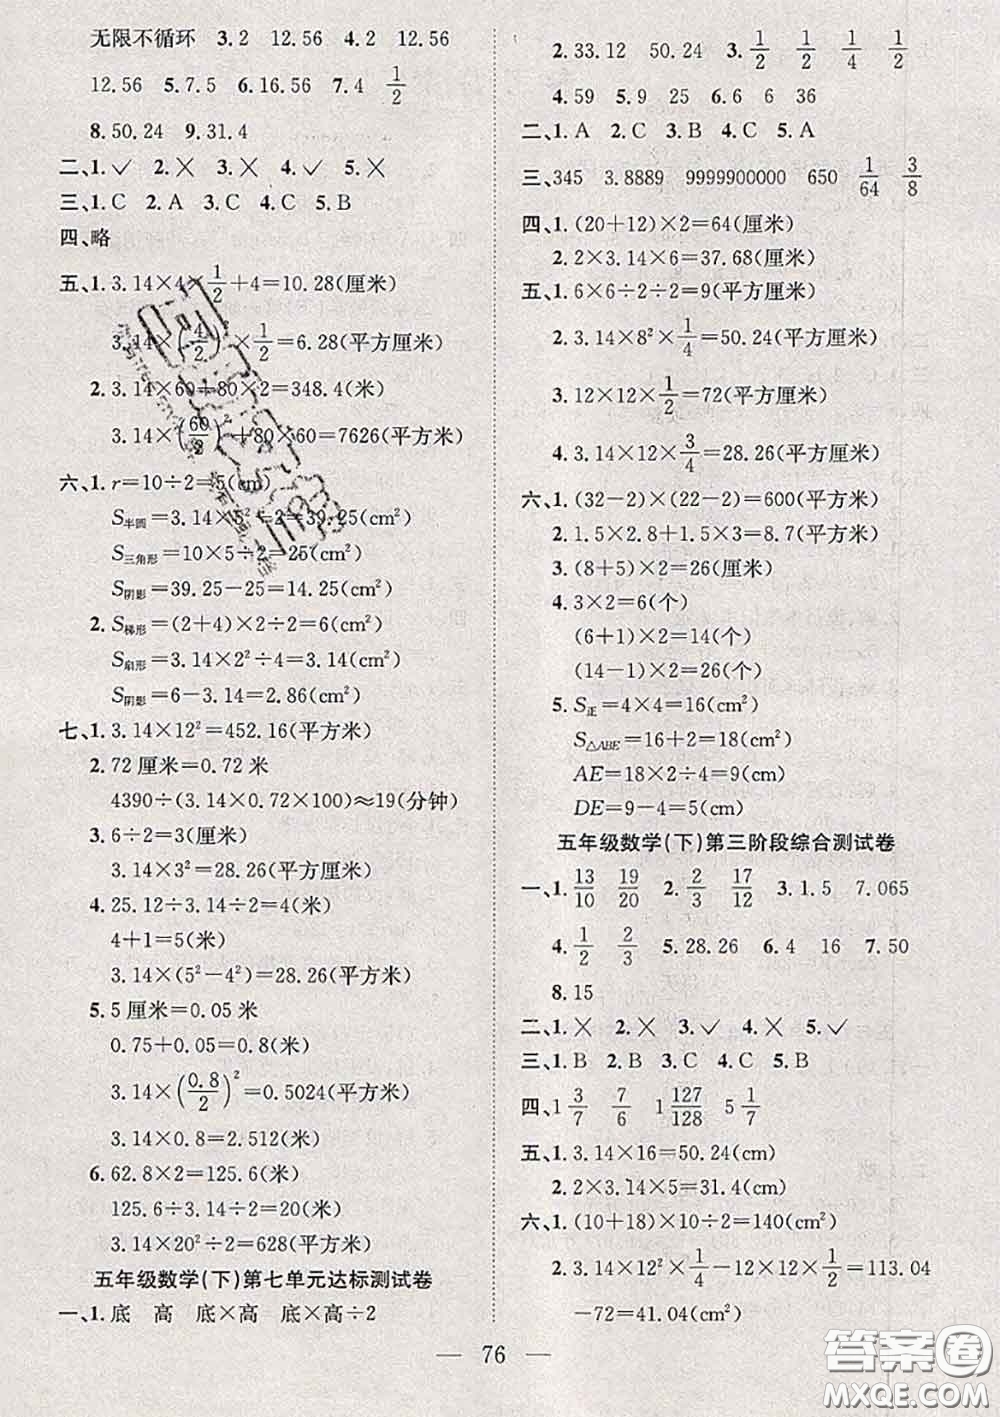 无限不循环 3.2 12.56 4.2 12.56
12.56 5.7.5 6.16.56 7.4 1/2
8.50.24 9.31.4
二、1.✓ 2.╳ 3.╳ 4.✓ 5.╳
三、1.C 2.A 3.C 4.C 5.B
四、略
五、1.3.14×4×1/2+4=10.28(厘米)
3.14×(4/2)²×1/2=6.28(平方厘米)
2.3.14×60+80×2=348.4(米)
3.14×(60/2)²+80×60=7626(平方米)
六、1.r=10÷2=5(cm)
S半圆=3.14×5²÷2=39.25(cm²)
S三角形=10×5÷2=25(cm²)
S阴影=39.25−25=14.25(cm²)
2.S梯形=(2+4)×2÷2=6(cm²)
S扇形=3.14×2²÷4=3.14(cm²)
S阴影=6−3.14=2.86(cm²)
七、1.3.14×12²=452.16(平方米)
2.72厘米=0.72米
4390÷(3.14×0.72×100)≈19(分钟)
3.6÷2=3(厘米)
3.14×3²=28.26(平方厘米)
4.25.12÷3.14÷2=4(米)
4+1=5(米)
3.14×(5²−4²)=28.26(平方米)
5.5厘米=0.05米
0.75+0.05=0.8(米)
3.14×(0.8/2)²=0.5024(平方米)
3.14×0.8=2.512(米)
6.62.8×2=125.6(米)
125.6÷3.14÷2=20(米)
3.14×20²÷2=628(平方米)
五年级数学(下)第七单元达标测试卷
一、1.底 高 底×高 底×高÷2
2.33.12 50.24 3.1/2 1/2 1/4 1/2
4.59 5.9 25 6.6 6 36
二、1.A 2.C 3.B 4.C 5.A
三、345 3.8889 9999900000 650 1/64 3/8
四、1.(20+12)×2=64(厘米)
2.2×3.14×6=37.68(厘米)
五、1.6×6÷2÷2=9(平方厘米)
2.3.14×8²×1/4=50.24(平方米)
3.12×12×1/2=72(平方厘米)
4.3.14×12×3/4=28.26(平方米)
六、1.(32−2)×(22−2)=600(平方米)
2.1.5×2.8+1.5×3=8.7(平方米)
3.(8+5)×2=26(厘米)
4.3×2=6(个)
(6+1)×2=14(个)
(14−1)×2=26(个)
5.S正=4×4=16(cm²)
S△ABE=16+2=18(cm²)
AE=18×2÷4=9(cm)
DE=9−4=5(cm)
五年级数学(下)第三阶段综合测试卷
一、1.13/10 19/20 2.2/3 17/12 3.1.5 7.065
4.1/2 2/3 5.28.26 6.4 16 7.50
8.15
二、1.╳ 2.╳ 3.✓ 4.╳ 5.✓
三、1.B 2.B 3.C 4.C 5.B
四、1 3/7 7/6 1 127/128 5 1/7
五、1.3.14×16=50.24(cm)
2.2×3.14×5=31.4(cm)
六、1.(10+18)×10÷2=140(cm²)
2.3.14×12×12×1/4−12×12×1/2=113.04
−72=41.04(cm²)
— 76 —
答案圈
MXQE.COM